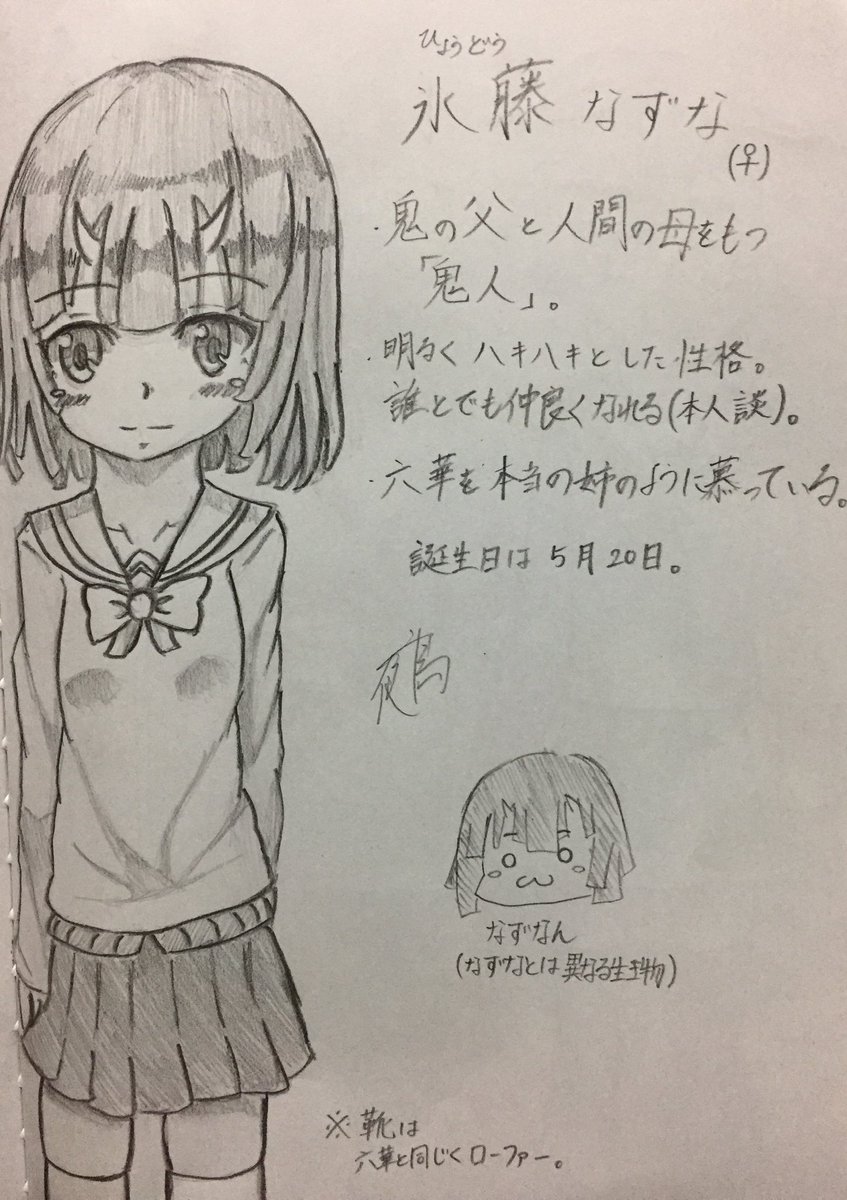 ひょうどう
氷藤 なずな
(♀)
・鬼の父と人間の母をもつ
「鬼人」。
・明るくハキハキとした性格。
誰とでも仲良くなれる(本人談)。
・六華を本当の姉のように慕っている。
誕生日は5月20日。
鵺
なずなん
(なずなとは異なる生き物)
※靴は
六華と同じくローファー。